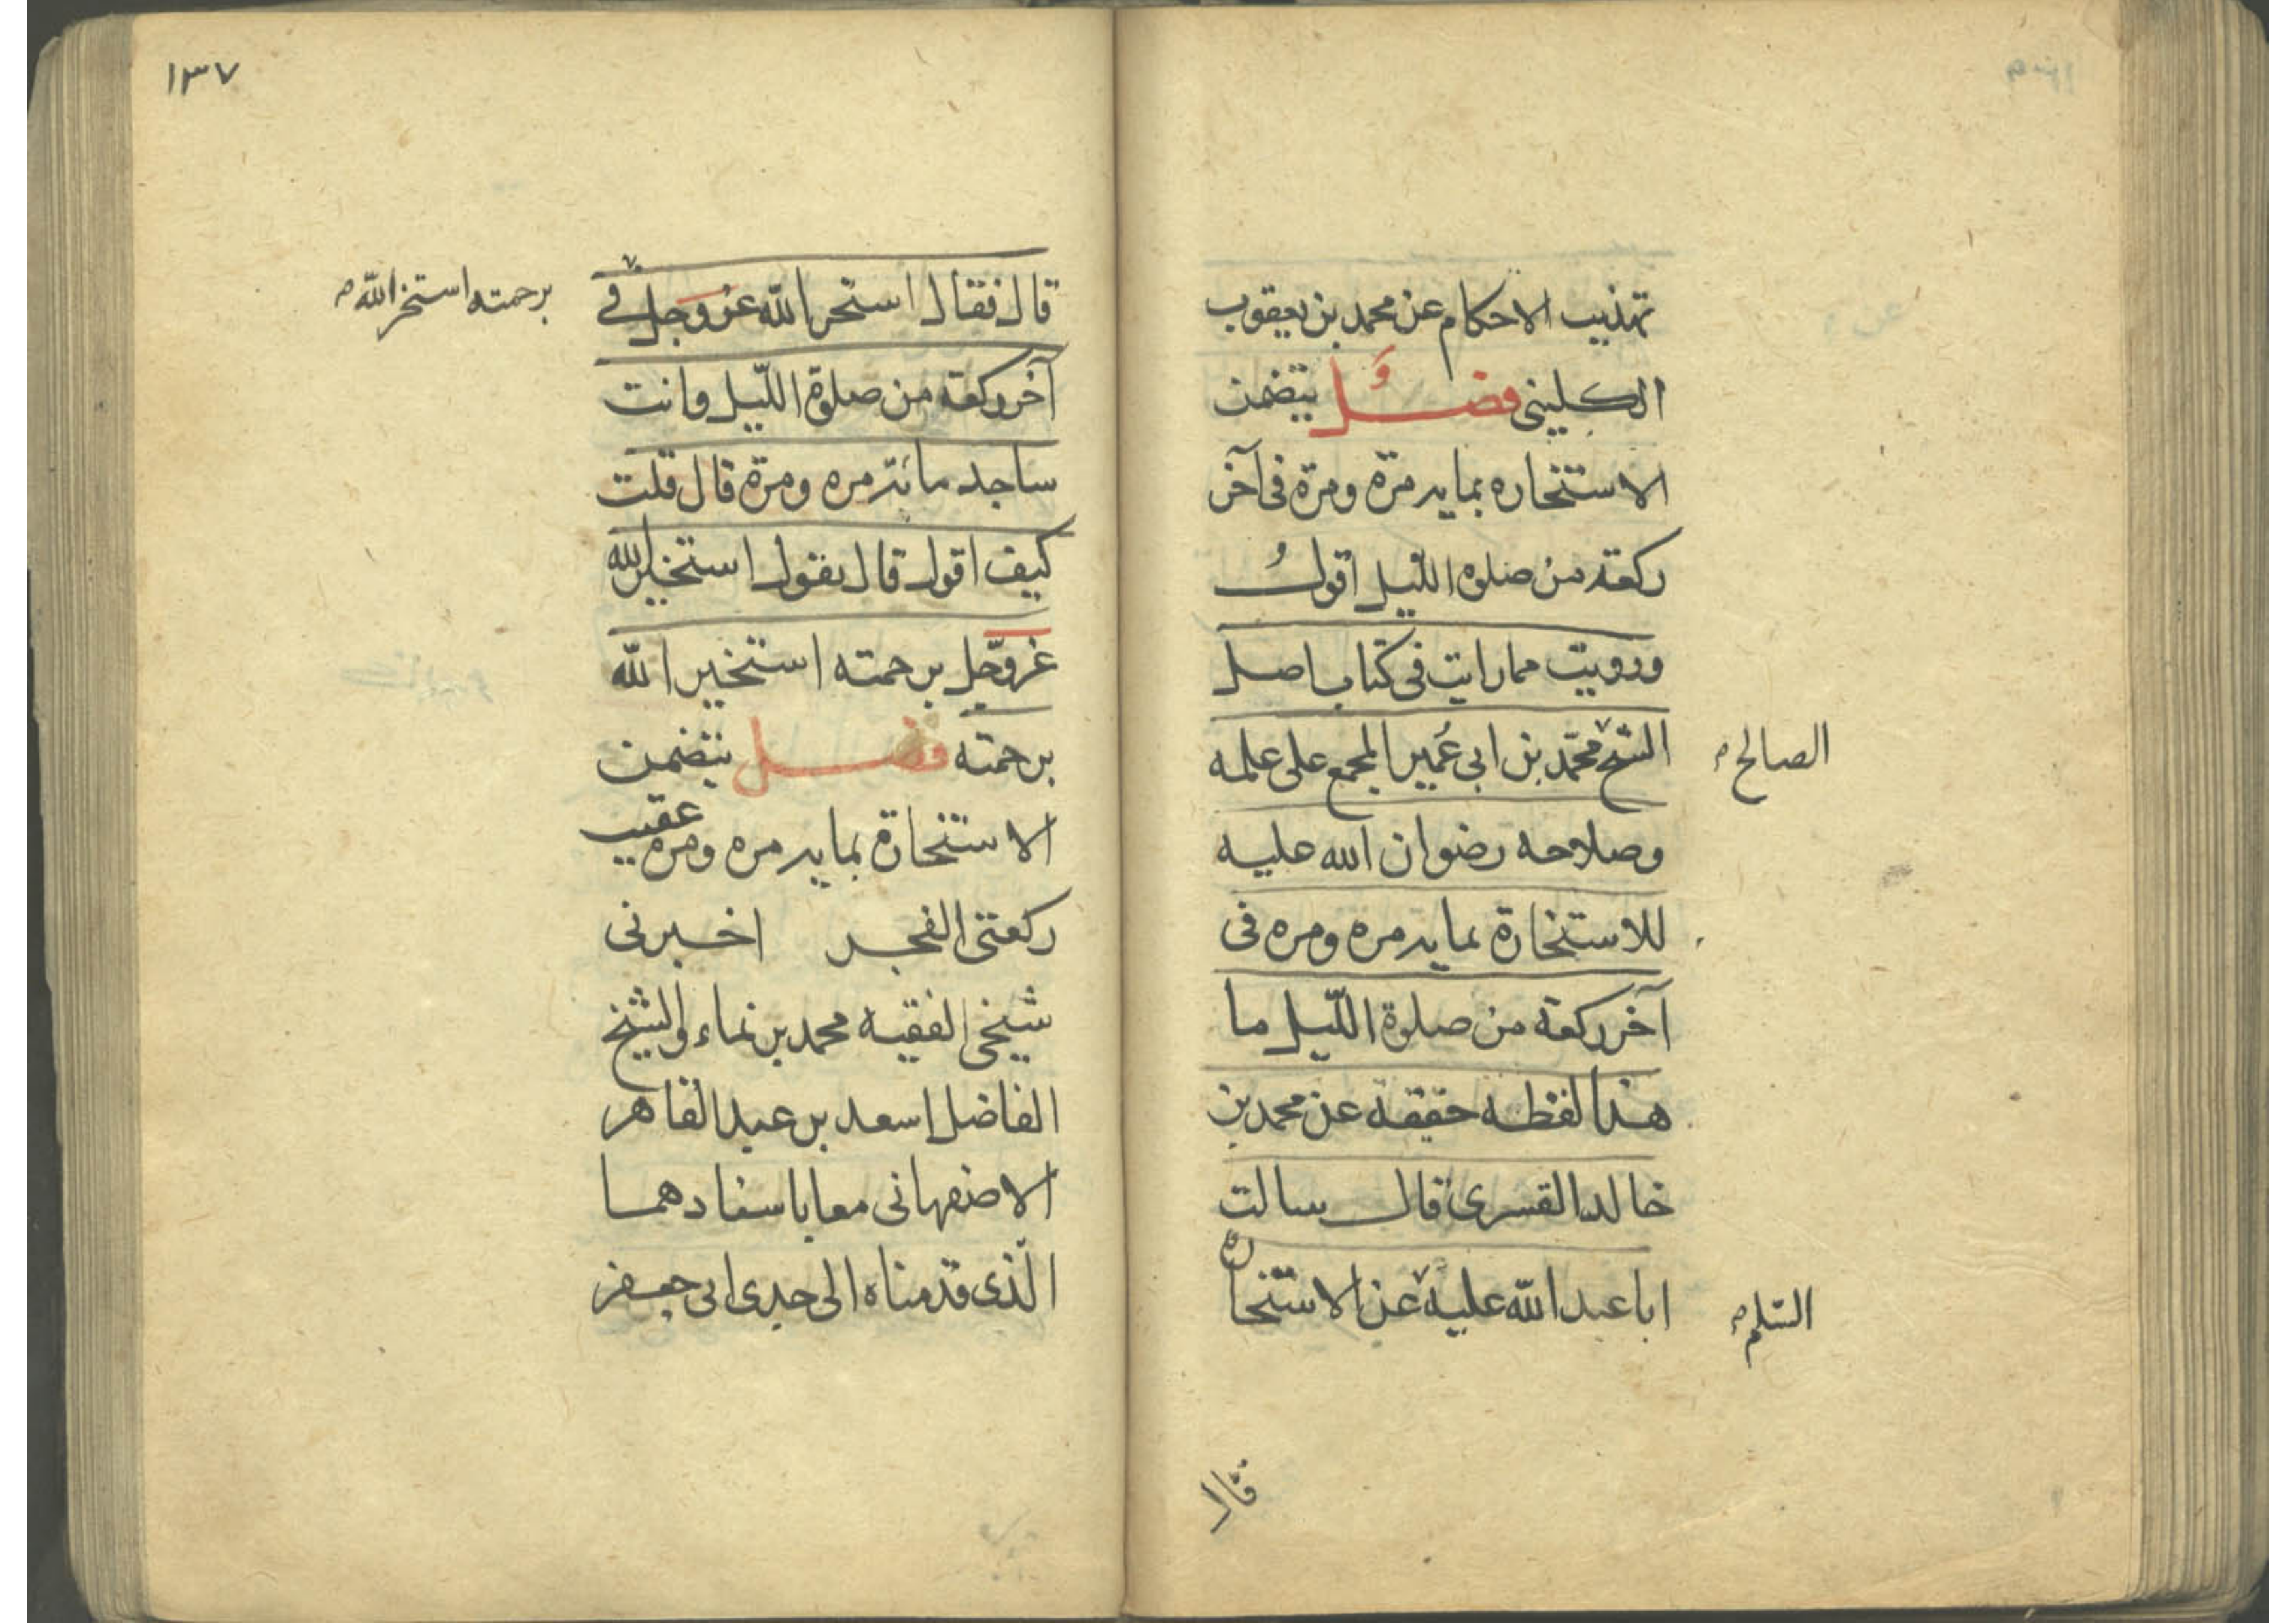 تهذيب الاحكام عن محمد بن يعقوب
الكليني فصل يتضمن
الاستخاره بمايه مرّة ومرّة في آخر
ركعة من صلوه الليل اقول
ورويت مما رايت في كتاب اصل
الشيخ محمّد بن ابي عُمير المجمع على علمه
الصالح
وصلاحه رضوان الله عليه
للاستخارة بمايه مره ومره في
آخر ركعة من صلوة اللّيل ما
هذا لفظه حقيقة عن محمد بن
خالد القسري قال سالت
ابا عبد الله عليه عن الاستخاره
السّلم
قال
١٣٧
قال فقال استخر الله عزّ وجل في
برحمته استخر الله
آخر ركعة من صلوة اللّيل وانت
ساجد مائة مره ومرّة قال قلت
كيف اقول قال تقول استخير الله
عزّ وجّل برحمته استخير الله
برحمته فصل يتضمن
الاستخارة بمايه مره ومره عقيب
ركعتي الفجر اخبرني
شيخي الفقيه محمد بن نماء والشيخ
الفاضل اسعد بن عبد القاهر
الاصفهاني معا باسنادهما
الّذي قدمناه الى جدي ابي جعفر